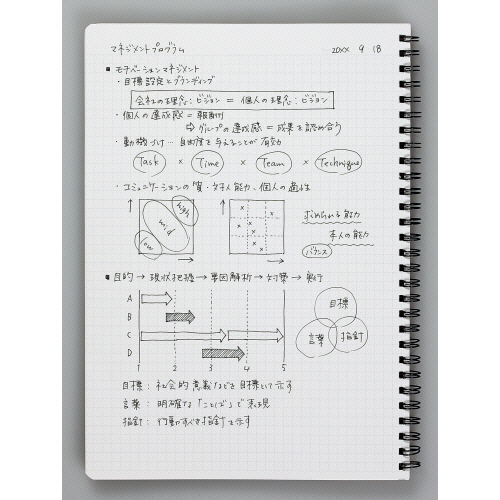 マネジメントプログラム 20XX 9 18
■ モチベーションマネジメント
・目標設定とグランディング
会社の理念：ビジョン ＝ 個人の理念：ビジョン
・個人の達成感 ＝ 報酬
⇨ グループの達成感 ＝ 成果を認め合う
・動機づけ … 自由度を与えることが有効
Task × Time × Team × Technique
・コミュニケーションの質・対人能力、個人の適性
low mid high
求められる能力
本人の能力
バランス
■ 目的 → 現状把握 → 要因解析 → 対策 → 実行
A
B
C
D
1 2 3 4 5
目標
言葉 指針
目標： 社会的意義などを目標として示す
言葉： 明確な「ことば」で表現
指針： 行動すべき指針を示す